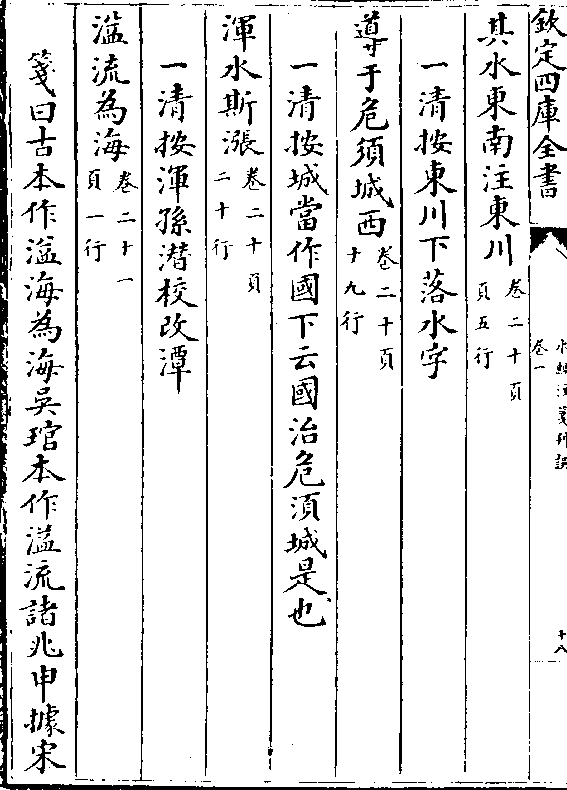 欽定四庫全書
水經注箋刊誤
卷一
十八
其水東南注東川卷二十頁
頁五行
一清按東川下落水字
導于危須城西卷二十頁
十九行
一清按城當作國下云國治危須城是也
渾水斯漲卷二十頁
二十行
一清按渾孫潜校改潭
溢流為海卷二十一
頁一行
箋曰古本作溢海為海吳琯本作溢流諸兆申據宋